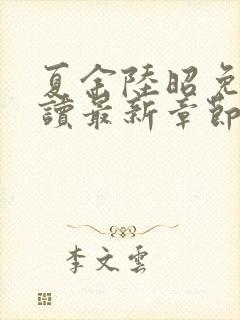 夏金陸昭免
讀最新章節
李文雲